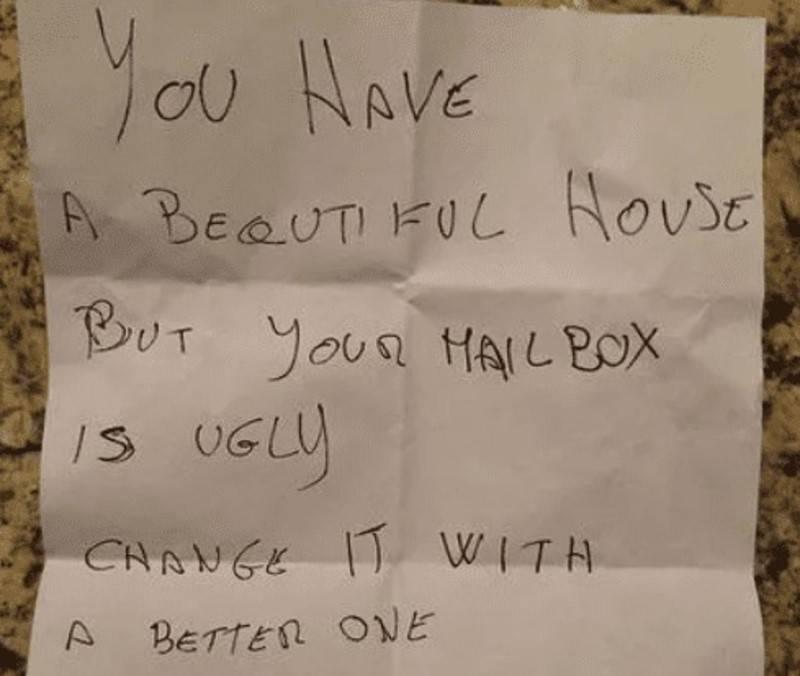 YOU HAVE
A BEAUTIFUL HOUSE
BUT YOUR MAILBOX
IS UGLY
CHANGE IT WITH
A BETTER ONE